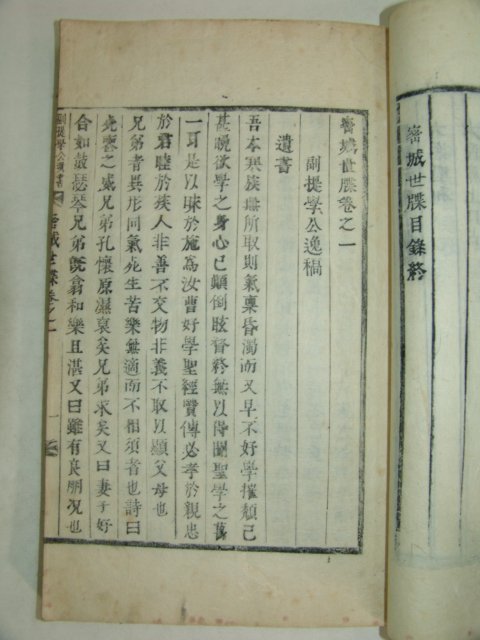 密城世牒目錄終
密城世牒卷之一
副提學公逸稿
遺書
吾本寒族無所取則氣稟昏濁而又早不好學摧頹已
甚晚欲學之身心已顚倒眩瞀終無以得闖聖學之萬
一可是以昧於施爲汝曹好學聖經賢傳必孝於親忠
於君睦於族人非善不交物非義不取以顯父母也
兄弟者異形同氣死生苦樂無適而不相須者也詩曰
死喪之威兄弟孔懷原濕裒矣兄弟求矣又曰妻子好
合如鼓瑟琴兄弟旣翕和樂且湛又曰雖有良朋况也
密城世牒卷之一
一